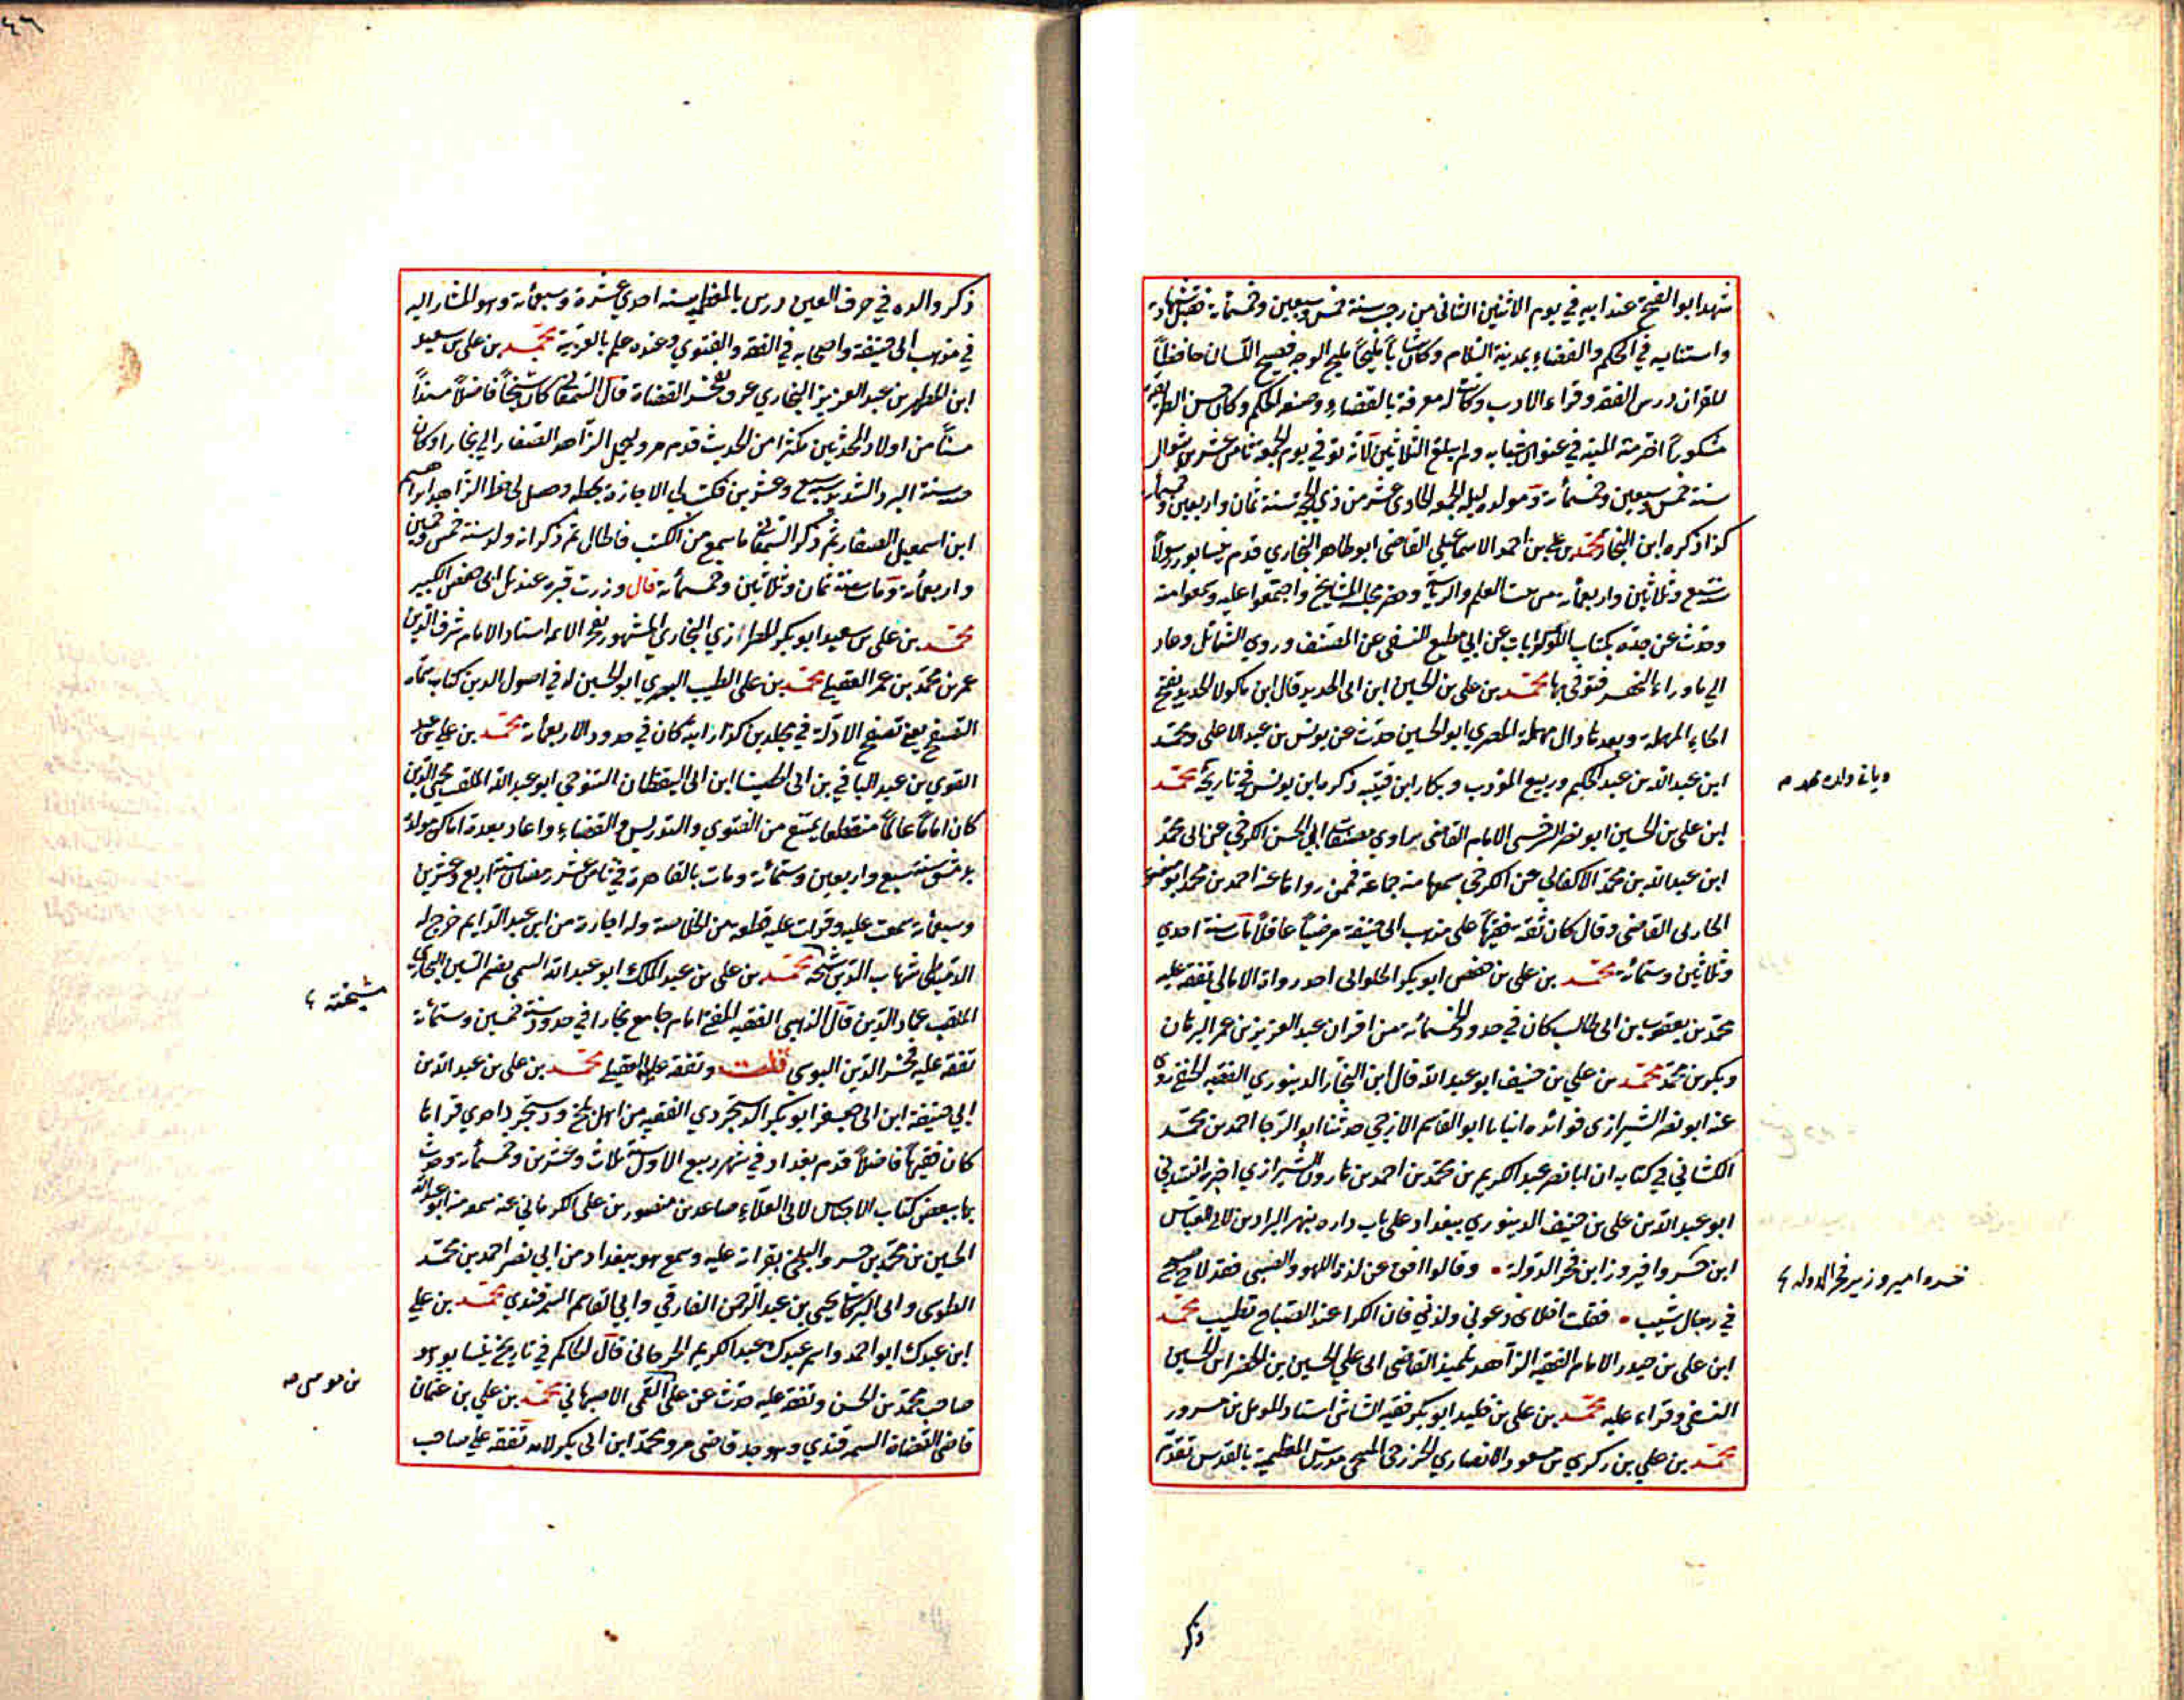 شهد ابو الفتح عند ابيه في يوم الاثنين الثاني من رجب سنة خمس وسبعين وخمسمائة فقبل شهادته
واستنابه في الحكم والقضاء بمدينة السلام وكان شاباً مليحاً مليح الوجه فصيح اللسان حافظاً
للقران درس الفقه وقراء الادب وكانت له معرفة بالقضاء وصنعه الحكم وكان حسن الطريقة
مشكوراً اخترمته المنية في عنوان شبابه ولم يبلغ الثلاثين لانه توفي يوم الجمعة ثامن عشرين شوال
سنة خمس وسبعين وخمسمائة ومولده ليلة الجمعة الحادي عشر من ذي الحجة سنة ثمان واربعين وخمسمائة
كذا ذكره ابن النجار محمد بن علي بن احمد الاسماعيلي القاضي ابو طاهر البخاري قدم نيسابور رسولاً
سنة سبع وثلاثين واربعمائة من بيت العلم والرياسة وحضر مجلسه المشايخ واجتمعوا عليه وسمعوا منه
وحدث عن جده بكتاب اللؤلؤيات عن ابي مطيع النسفي عن المصنف وروي الشمائل وعاد
الي ما وراء النهر فتوفي بها محمد بن علي بن الحسين ابن ابى الحديد قال ابن ماكولا الحديد بفتح
الحاء المهملة وبعدها دال مهملة المصري ابو الحسين حدث عن يونس بن عبد الاعلى ومحمد
ابن عبد الله بن عبد الحكم وربيع المؤدب وبكار ابن قتيبه ذكره ابن يونس في تاريخه محمد
ابن علي بن الحسين ابو نصر السرخسي الامام القاضي راوي مصنفات ابي الحسن الكرخي عن ابى محمد
ابن عبد الله بن محمد الاكفاني عن الكرخي سمعها منه جماعة فمن رواها عنه احمد بن محمد ابو منصور
الحارثى القاضي وقال كان ثقة فقيهاً على مذهب ابى حنيفة مرضياً عاقلاً مات سنة احدي
وثلاثين وستمائة محمد بن علي بن حفص ابو بكر الحلوانى احد رواة الامالى تفقه عليه
محمد بن يعقوب بن ابى طالب كان في حدود الخمسمائة من اقران عبد العزيز بن عمر البرهان
وبكر بن محمد محمد بن علي بن خنيف ابو عبد الله قال ابن النجار الدينوري الفقيه الحنفي روى
عنه ابو نصر الشيرازى فوائده انبانا ابو القاسم الازجي حدثنا ابو الرجا احمد بن محمد
الكشاني في كتابه ان ابا نصر عبد الكريم بن محمد بن احمد بن هارون الشيرازي اخبره انشدني
ابو عبد الله بن علي بن خنيف الدينوري ببغداد على باب داره بنهر البزازين لابى العباس
ابن خسروا فيروز ابن فخر الدولة • وقالوا افق عن لذة اللهو والصبى فقد لاح صبح
في رجال شيب • فقلت اخلاى دعوني ولذتي فان الكرا عند الصباح تطيب محمد
ابن علي بن حيدر الامام الفقيه الزاهد تلميذ القاضي ابى علي الحسين بن الخضر ابن الحسين
النسفى وقراء عليه محمد بن علي بن خليد ابو بكر فقيه الشاش استاد المؤمل بن مسرور
محمد بن علي بن زكري بن مسعود الانصاري الخزرجى المنبجى مدرس المعظمية بالقدس تقدم
خسره امير وزير فخر الدولة
ذكر
٤٦
ذكر والده في حرف العين درس بالمعظمية سنه احدي عشرة وسبعمائة وهو المشار اليه
في مذهب ابى حنيفة واصحابه في الفقه والفتوي وعنده علم بالعربية محمد بن على بن سعيد
ابن المطهر بن عبد العزيز البخاري عرف بفخر القضاة قال السمعاني كان شيخاً فاضلاً مسنداً
مسناً من اولاد المحدثين مكثرا من الحديث قدم مرو لاجل الزاهد الصفار الي بخارا وكان
سنة البرد الشديد سبع وعشرين فكتب لي الاجازة بخطه وحصل لي خط الزاهد ابراهيم
ابن اسمعيل الصفار ثم ذكر السمعاني ما سمع من الكتب فاطال ثم ذكر انه ولد سنة خمس وخمسين
واربعمائة ومات سنة ثمان وثلاثين وخمسمائة قال وزرت قبره عند تل ابي حفص الكبير
محمد بن على بن سعيد ابو بكر المطرزي البخاري المشهور بفخر الائمه استاد الامام شرف الدين
عمر بن محمد بن عمر العقيلي محمد بن على الطيب البصري ابو الحسين له في اصول الدين كتاب سماه
التصفح يعني تصفح الادلة في مجلدين كذا رايته كان في حدود الاربعمائة محمد بن علي بن عبد
القوي بن عبد الباقي بن ابى اليقظان التنوخي ابو عبد الله الملقب محيي الدين
كان اماماً عالماً منقطعا يمتنع من الفتوي والتدريس والقضاء واعاد بعدة اماكن مولده
بدمشق سنة سبع واربعين وستمائة ومات بالقاهرة في ثامن عشر رمضان سنة اربع وعشرين
وسبعمائة سمعت عليه وقرات عليه قطعه من الخلاصة وله اجازة من ابن عبد الدايم خرج له
الدمياطي شهاب الدين مشيخة محمد بن علي بن عبد الملك ابو عبد الله السمى بضم السين البخاري
الملقب عماد الدين قال الذهبي الفقيه المفتي امام جامع بخارا في حدود سنة خمسين وستمائة
تفقه عليه فخر الدين البوسي قلت وتفقه على العقيلي محمد بن علي بن عبد الله بن
ابي حنيفة ابن ابى جعفر ابو بكر الدستجردي الفقيه من اهل بلخ ودستجرد احدي قراها
كان فقيهاً فاضلاً قدم بغداد في شهر ربيع الاول سنة ثلاث وعشرين وخمسمائة وحدث
بها ببعض كتاب الاجناس لابى العلاء صاعد بن منصور بن على الكرماني عنه سمعه منه ابو عبد الله
الحسين بن محمد بن خسرو البلخي بقراته عليه وسمع هو ببغداد من ابي نصر احمد بن محمد
الطوسى وابى البركات يحيى بن عبد الرحمن الفارقي وابي القاسم السمرقندي محمد بن علي
ابن عبدك ابو احمد واسم عبدك عبد الكريم الجرجانى قال الحاكم في تاريخ نيسابور هو
صاحب محمد بن الحسن وتفقه عليه حدث عن علي القمى الاصبهاني محمد بن علي بن عثمان
قاضى القضاة السمرقندي وهو جد قاضى مرو محمد ابن ابى بكر لامه تفقه علي صاحب
مشيخته
بن موسى